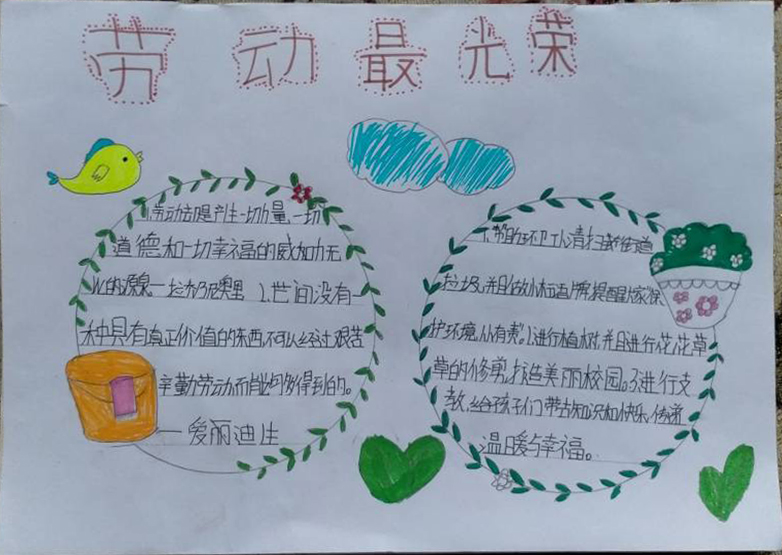 劳动最光荣
劳动却是产生一切力量、一切
道德和一切幸福的威力无
比的源泉一拉为尼奥里 1.世间没有一
木中具有真正价值的东西,不可以经过艰苦
辛勤劳动而能够得到的。
— 爱丽迪生
1.帮助环卫工人清扫街道
垃圾,并且做小标语牌提醒大家保
护环境,从有责。2.进行植树,并且进行花花草
草的修剪,打造美丽校园。3.进行支
教,给孩子们带去知识和快乐,传递
温暖与幸福。